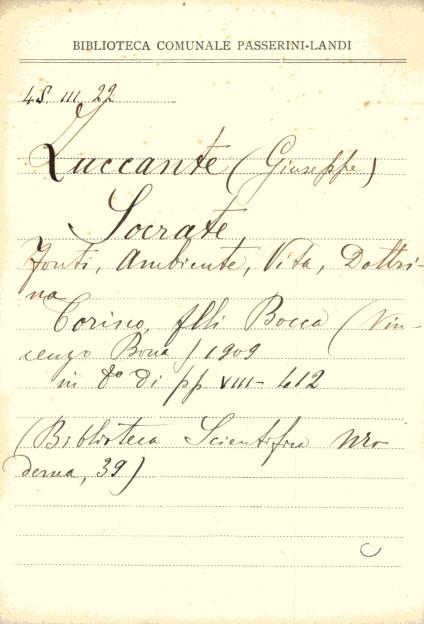 BIBLIOTECA COMUNALE PASSERINI-LANDI
4S. III. 22
Zuccante (Giuseppe)
Socrate,
Fonti, Ambiente, Vita, Dottri-
na
Torino, flli Bocca (Vin-
cenzo Bona) 1909
in 8° di pp VIII - 412
(Biblioteca Scientifica Mo
derna, 39)
C